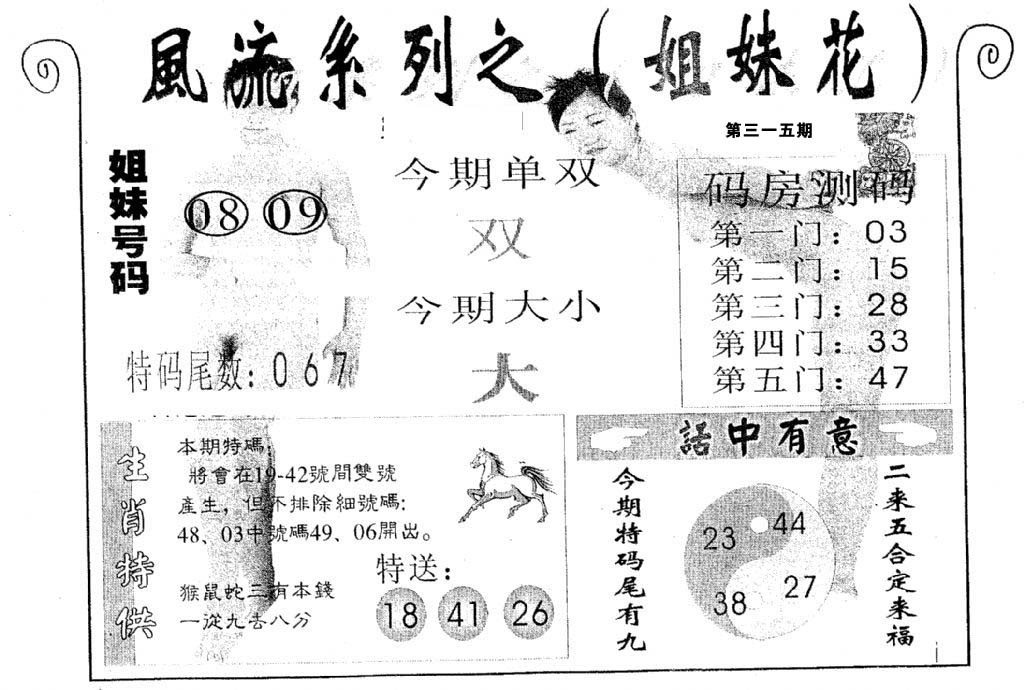 風流系列之（姐妹花）
第三一五期
姐妹号码
08 09
特码尾数：067
今期单双
双
今期大小
大
码房测码
第一门：03
第二门：15
第三门：28
第四门：33
第五门：47
生肖特供
本期特碼：
將會在19-42號間雙號
產生，但不排除細號碼：
48、03中號碼49、06開出。
猴鼠蛇三有本錢
一從九去八分
特送：
18 41 26
話中有意
今期特码尾有九
23 44
38 27
二来五合定来福